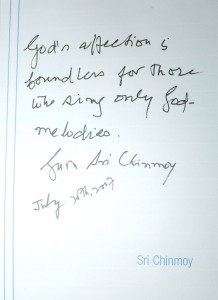 God's affection is
boundless for those
who sing only God-
melodies.
Sri Chinmoy
July
Sri Chinmoy